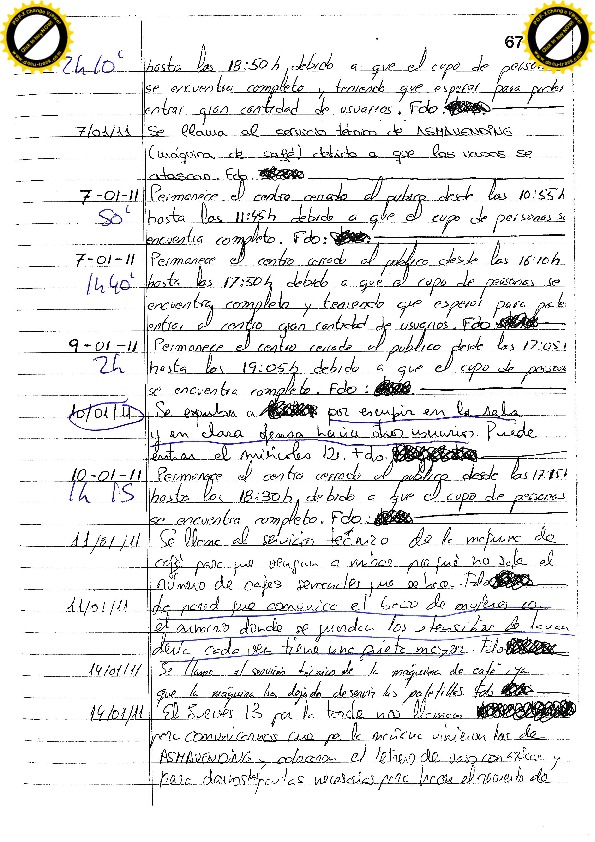 67
2h 10' hasta las 18:50h, debido a que el cupo de
se encuentra completo y teniendo que esperar para poder
entrar gran cantidad de usuarios. Fdo
7/01/11 Se llama al servicio técnico de ASMAVENDING
(máquina de café) debido a que los vasos se
atascan. Fdo.
7-01-11 Permanece el centro cerrado al público desde las 10:55h
50' hasta las 11:45h debido a que el cupo de personas se
encuentra completo. Fdo:
7-01-11 Permanece el centro cerrado al público desde las 16:10h
1h40' hasta las 17:50h debido a que el cupo de personas se
encuentra completo y teniendo que esperar para poder
entrar al centro gran cantidad de usuarios. Fdo
9-01-11 Permanece el centro cerrado al público desde las 17:05h
2h hasta las 19:05h debido a que el cupo de
se encuentra completo. Fdo:
10/01/11 Se expulsa a por escupir en la sala
y en clara ofensa hacia otros usuarios. Puede
entrar el miércoles 12. Fdo.
10-01-11 Permanece el centro cerrado al público desde las 17:15h
1h 15 hasta las 18:30h, debido a que el cupo de personas
se encuentra completo. Fdo:
11/01/11 Se llama al servicio técnico de la máquina de
café para que vengan a mirar por qué no sale el
número de cafés
11/01/11 La pared que comunica el baño de mujeres con
el donde se guardan los utensilios de lavan
dería cada vez tiene una grieta mayor. Fdo
14/01/11 Se llama al servicio técnico de la máquina de café ya
que la máquina ha dejado de servir las paletillas Fdo
14/01/11 El Jueves 13 por la tarde nos llamaron
para comunicarnos que por la mañana vinieron los de
ASMAVENDING y colocaron el letrero de y
para las necesarias para hacer el recuento de